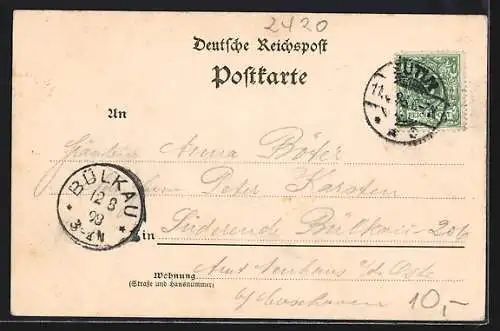 2420
Deutsche Reichspost
Postkarte
An
Fräulein Anna
Peter Karsten
BÜLKAU
12 8
98
3-4N
in Süderende Bülkau
Wohnung
(Straße und Hausnummer)
Amt Neuhaus a/d Oste
b/ Cuxhaven
10,-